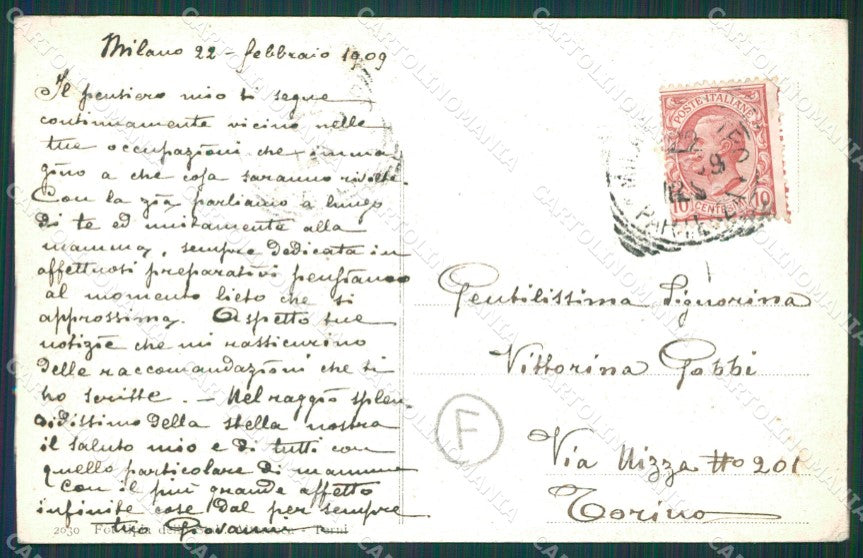 Milano 22 - febbraio 1909
Il pensiero mio ti segue
continuamente vicino nelle
tue occupazioni che imma
gino a che cosa saranno rivolte.
Con la zia parliamo a lungo
di te ed unitamente alla
mamma, sempre dedicata in
affettuosi preparativi pensiamo
al momento lieto che si
approssima. Aspetto tue
notizie che mi rassicurino
delle raccomandazioni che ti
ho scritte. - Nel raggio splen
didissimo della stella nostra
il saluto mio e di tutti con
quello particolare di mamma
Con il più grande affetto
infinite cose dal per sempre
tuo Giovanni
2030 Terni
POSTE·ITALIANE
10 CENTESIMI 10
MILANO
22
09
PARTENZA
Gentilissima Signorina
Vittorina Gobbi
Via Nizza No 201
Torino
F
CARTOLINOMANIA